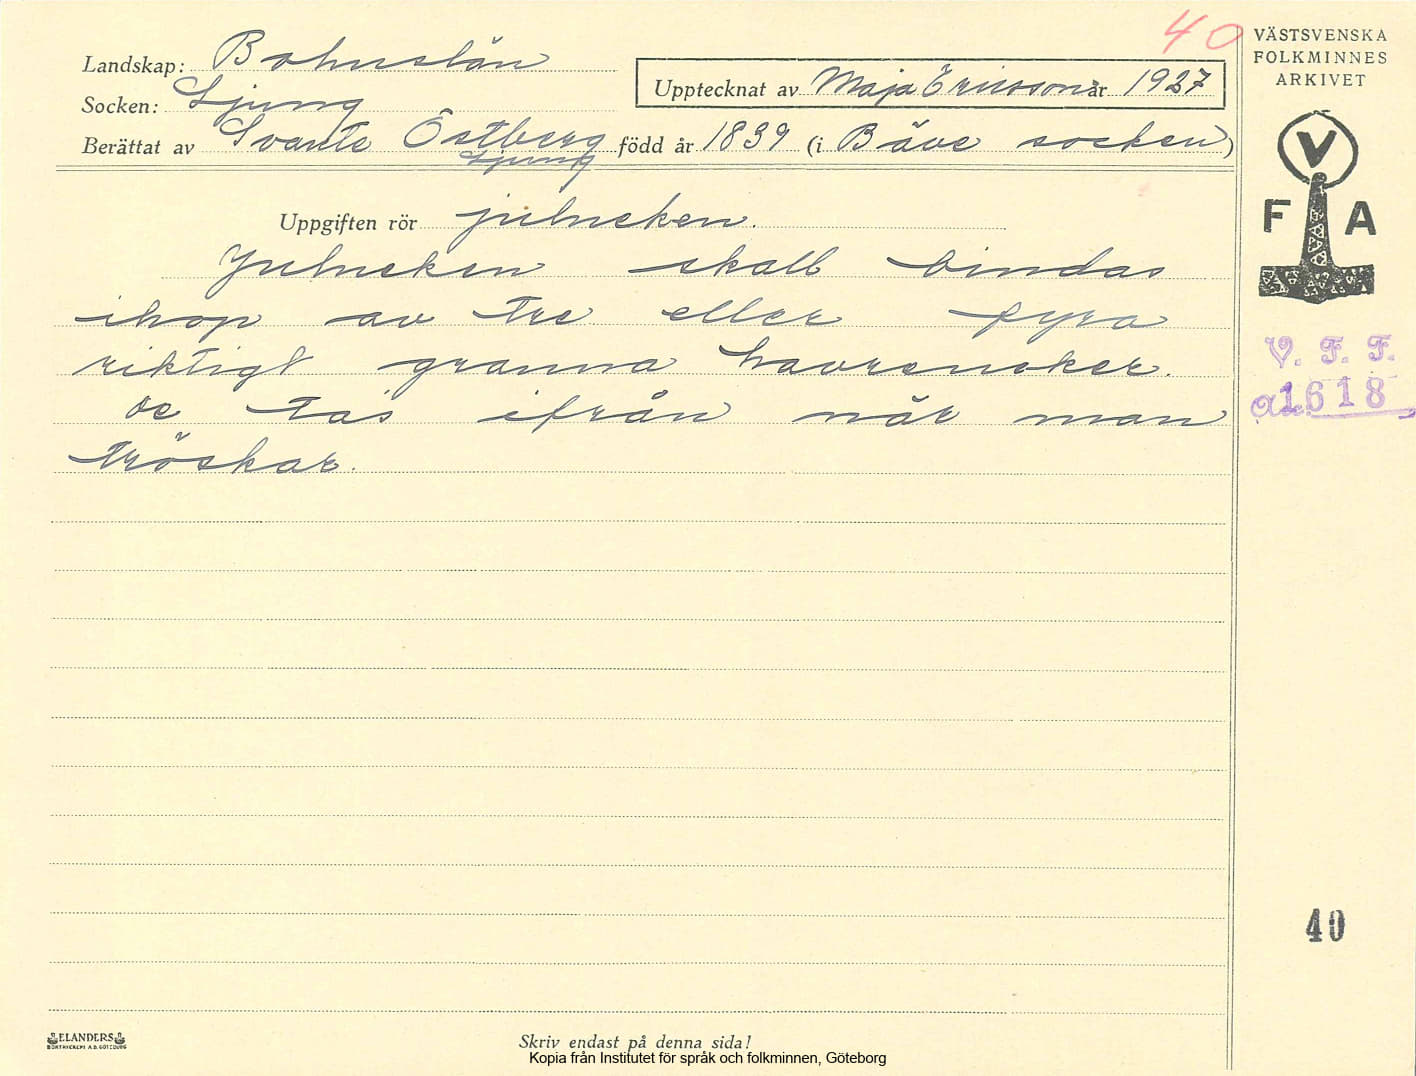 40
VÄSTSVENSKA
FOLKMINNES
ARKIVET
Landskap: Bohuslän
Upptecknat av Maja Ericsson år 1927
Socken: Ljung
Berättat av Svante Östberg född år 1839 (i Bäve socken)
Ljung
V
F A
Uppgiften rör julneken.
Julneken skall bindas
ihop av tre eller fyra
riktigt granna havreneker.
De tas ifrån när man
tröskar.
V. F. F.
1618
40
ELANDERS
BOKTRYCKERI A.B. GÖTEBORG
Skriv endast på denna sida!
Kopia från Institutet för språk och folkminnen, Göteborg